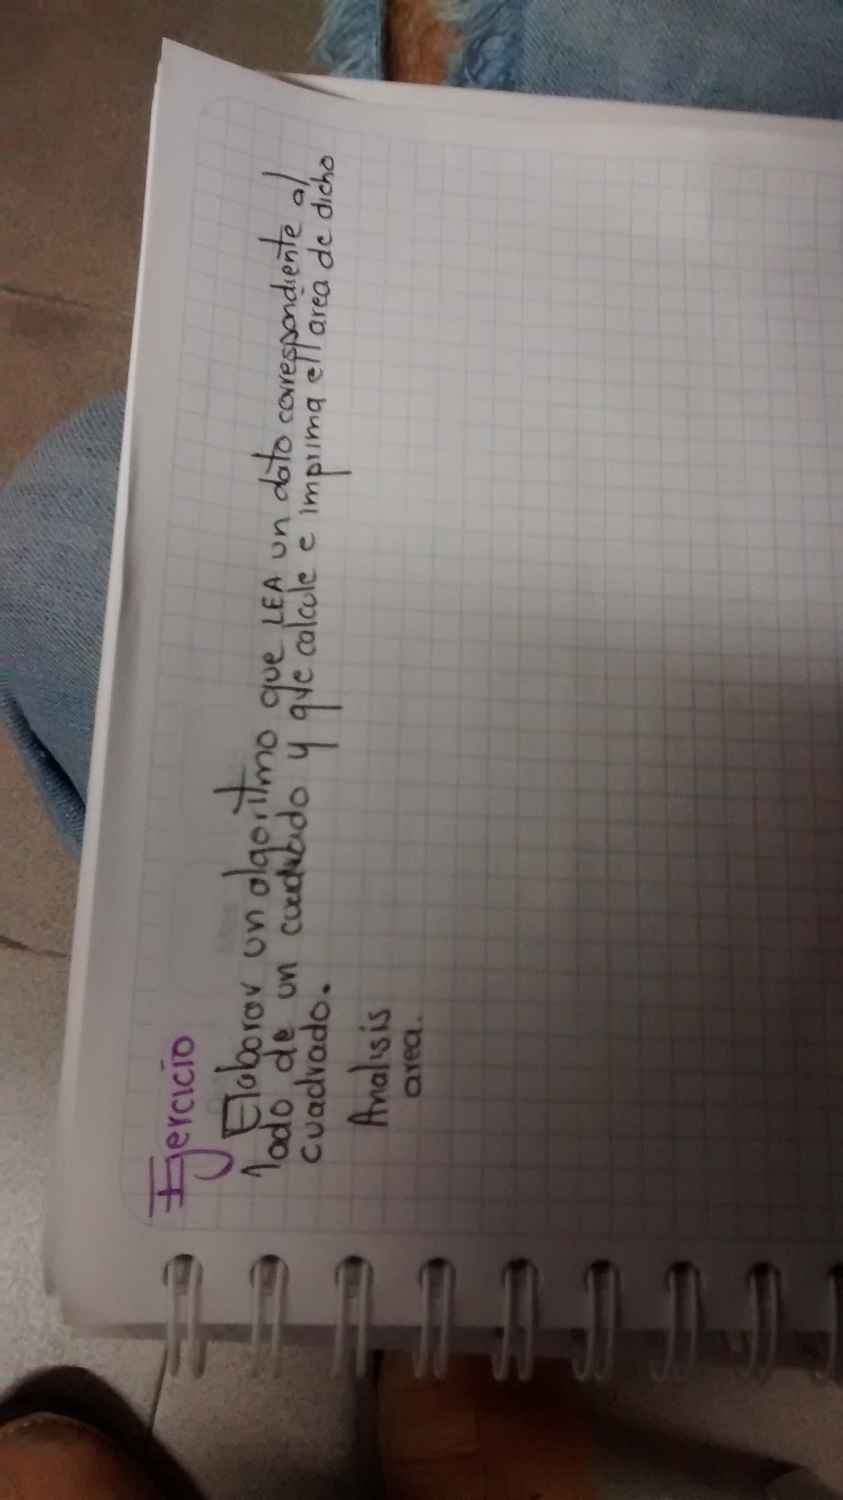 Ejercicio
Elaborar un algoritmo que LEA un dato correspondiente al
lado de un cuadrado y que calcule e imprima ell area de dicho
cuadrado.
Analisis
area.